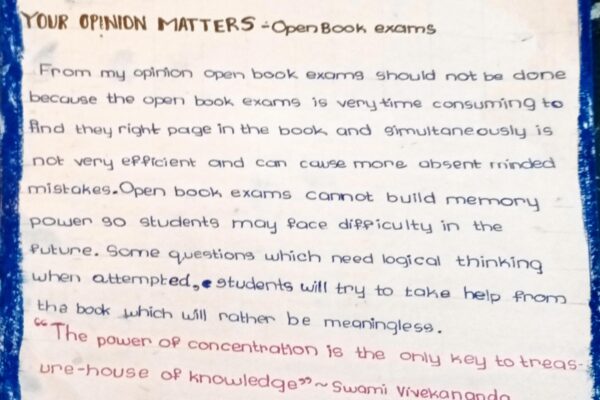 YOUR OPINION MATTERS - Open Book exams
From my opinion open book exams should not be done
because the open book exams is very time consuming to
find they right page in the book and simultaneously is
not very efficient and can cause more absent minded
mistakes. Open book exams cannot build memory
power so students may face difficulty in the
future. Some questions which need logical thinking
when attempted, students will try to take help from
the book which will rather be meaningless.
"The power of concentration is the only key to treas-
ure-house of knowledge" ~ Swami Vivekananda